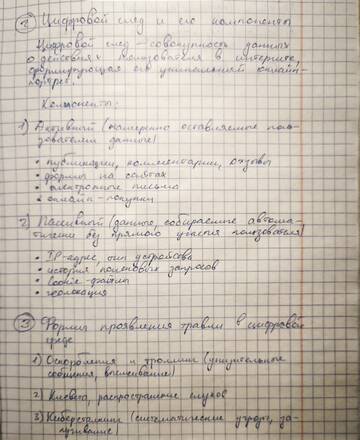 2 Цифровой след и его компоненты
Цифровой след - совокупность данных
о действиях пользователя в интернете,
формирующая его уникальный онлайн-
портрет.
Компоненты:
1) Активный (намеренно оставляемые поль-
зователем данные)
• публикации, комментарии, отзывы
• формы на сайтах
• электронные письма
• онлайн-покупки
2) Пассивный (данные, собираемые автома-
тически без прямого участия пользователя)
• IP-адрес, тип устройства
• история поисковых запросов
• cookie-файлы
• геолокация
3 Формы проявления травли в цифровой
среде
1) Оскорбления и троллинг (унизительные
сообщения, высмеивание)
2) Клевета, распространение слухов
3) Киберсталкинг (систематические угрозы, за-
пугивание)